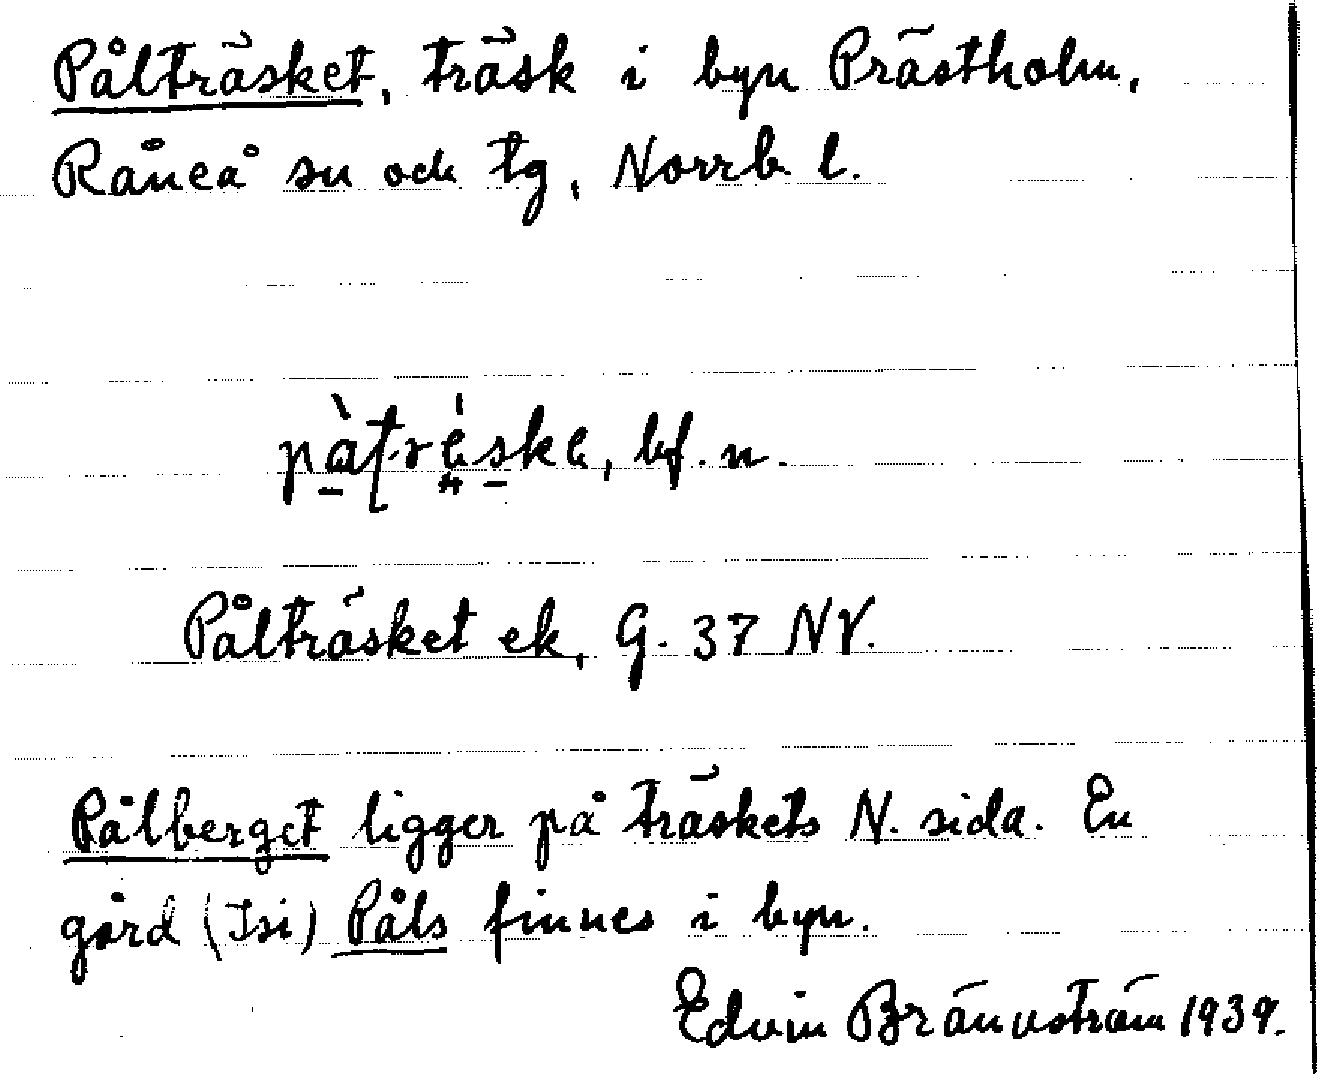 Pålträsket, träsk i byn Prästholm,
Råneå sn och tg, Norrb. l.
bf. n.
Pålträsket ek, G. 37 NV.
Pålberget ligger på träskets N. sida. En
gård (Isi) Påls finnes i byn.
Edvin Brännström 1939.